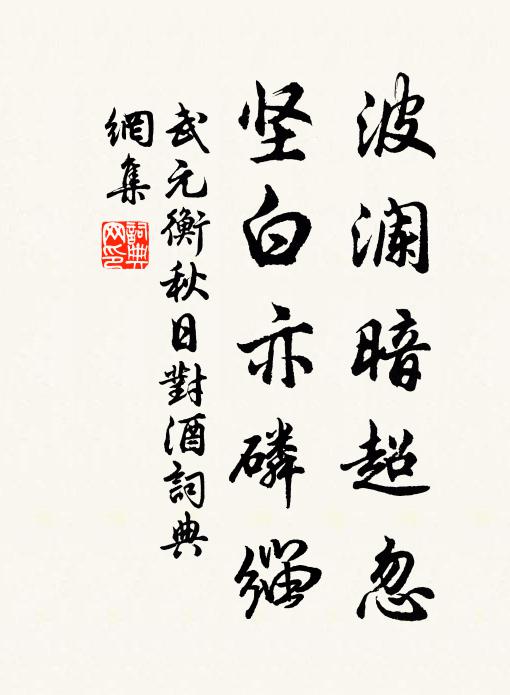 波澜暗超忽
坚白亦磷缁
武元衡秋日對酒詞典
網集
詞典网印